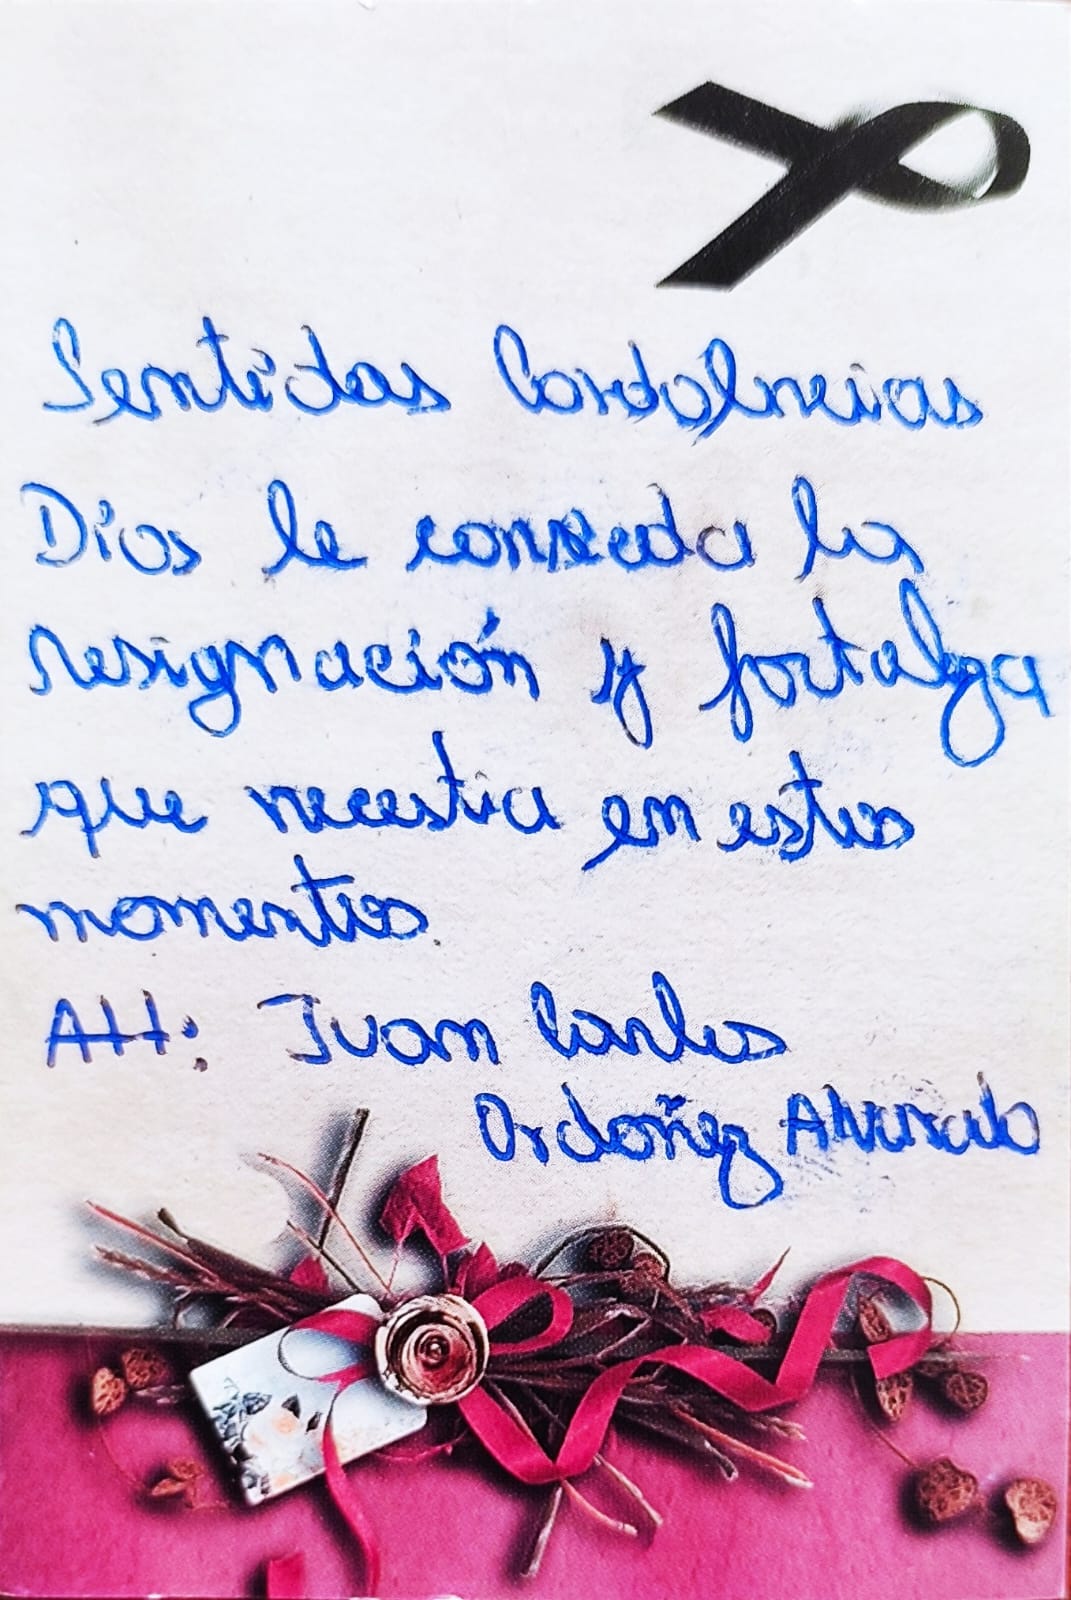 Sentidas Condolneias
Dios le conseda la
resignación y fortaleza
que necestia en estos
momentos.
Att: Juan Carlos
Ordoñez Alvarado